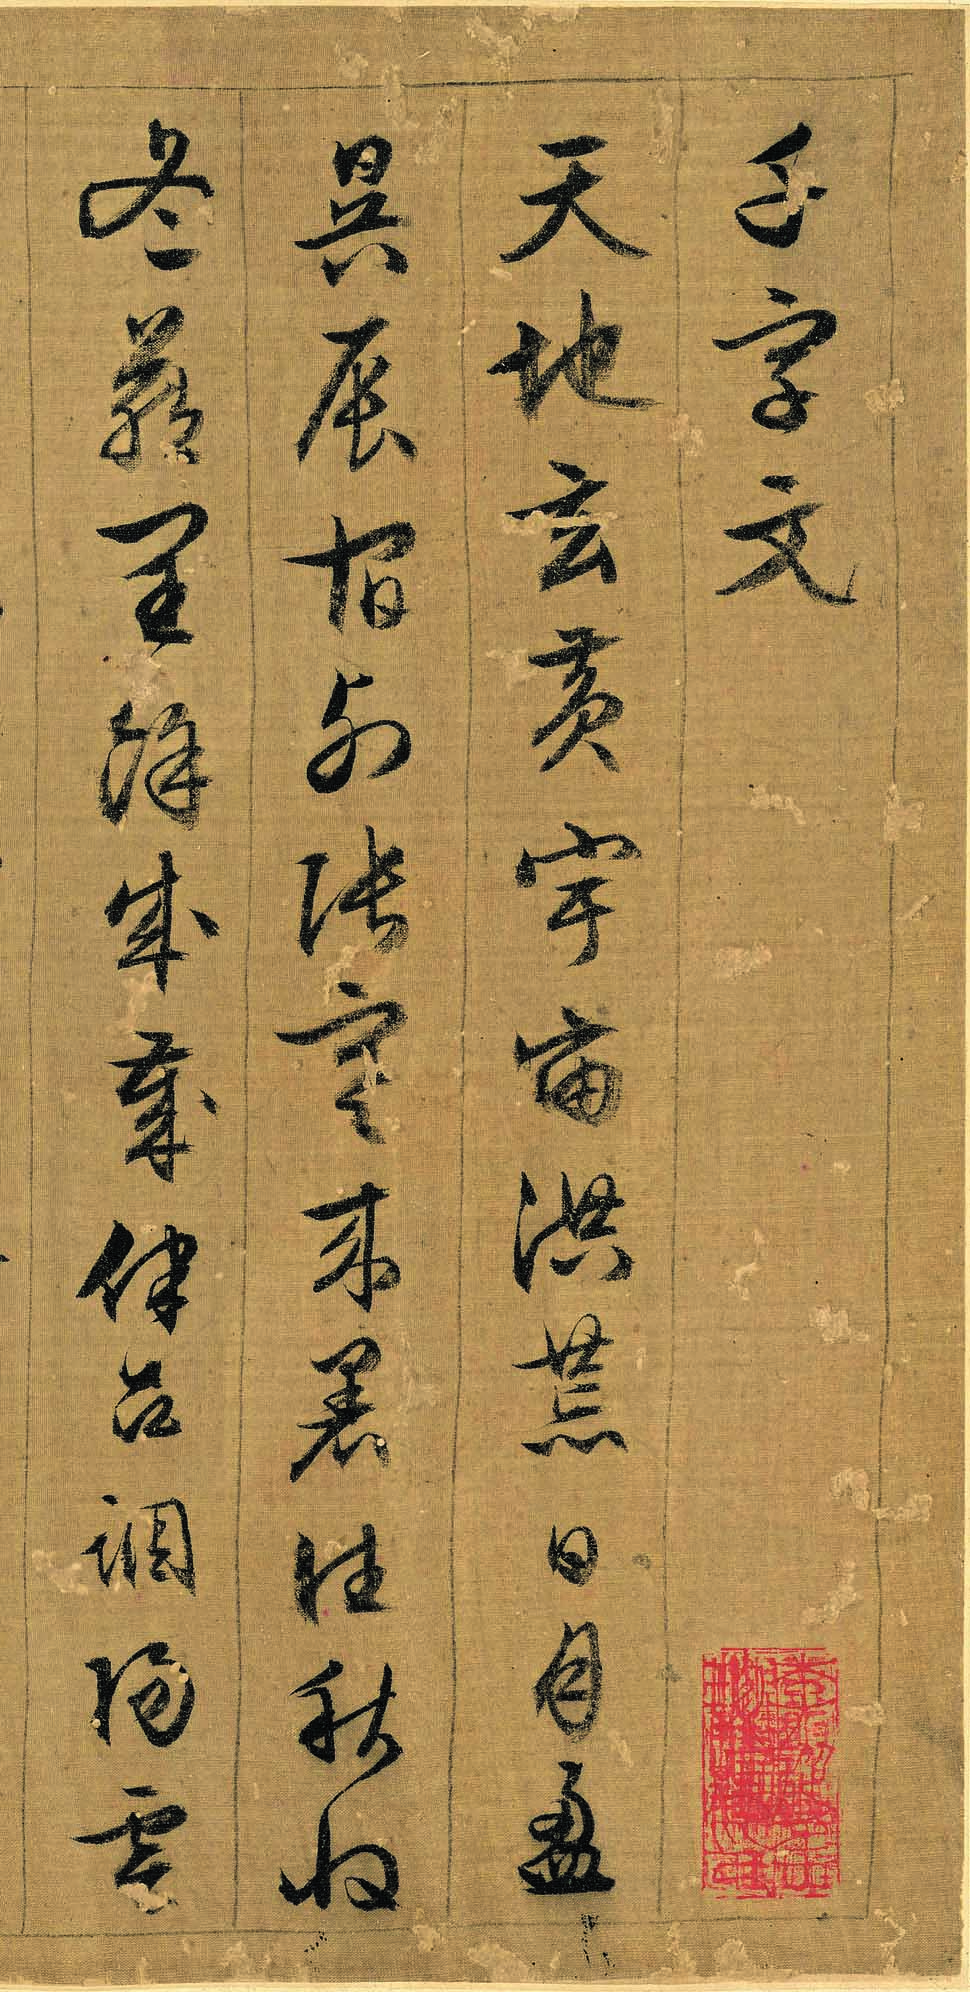 千字文
天地玄黃宇宙洪荒日月盈
昃辰宿列張寒來暑往秋收
冬藏閏餘成歲律呂調陽雲